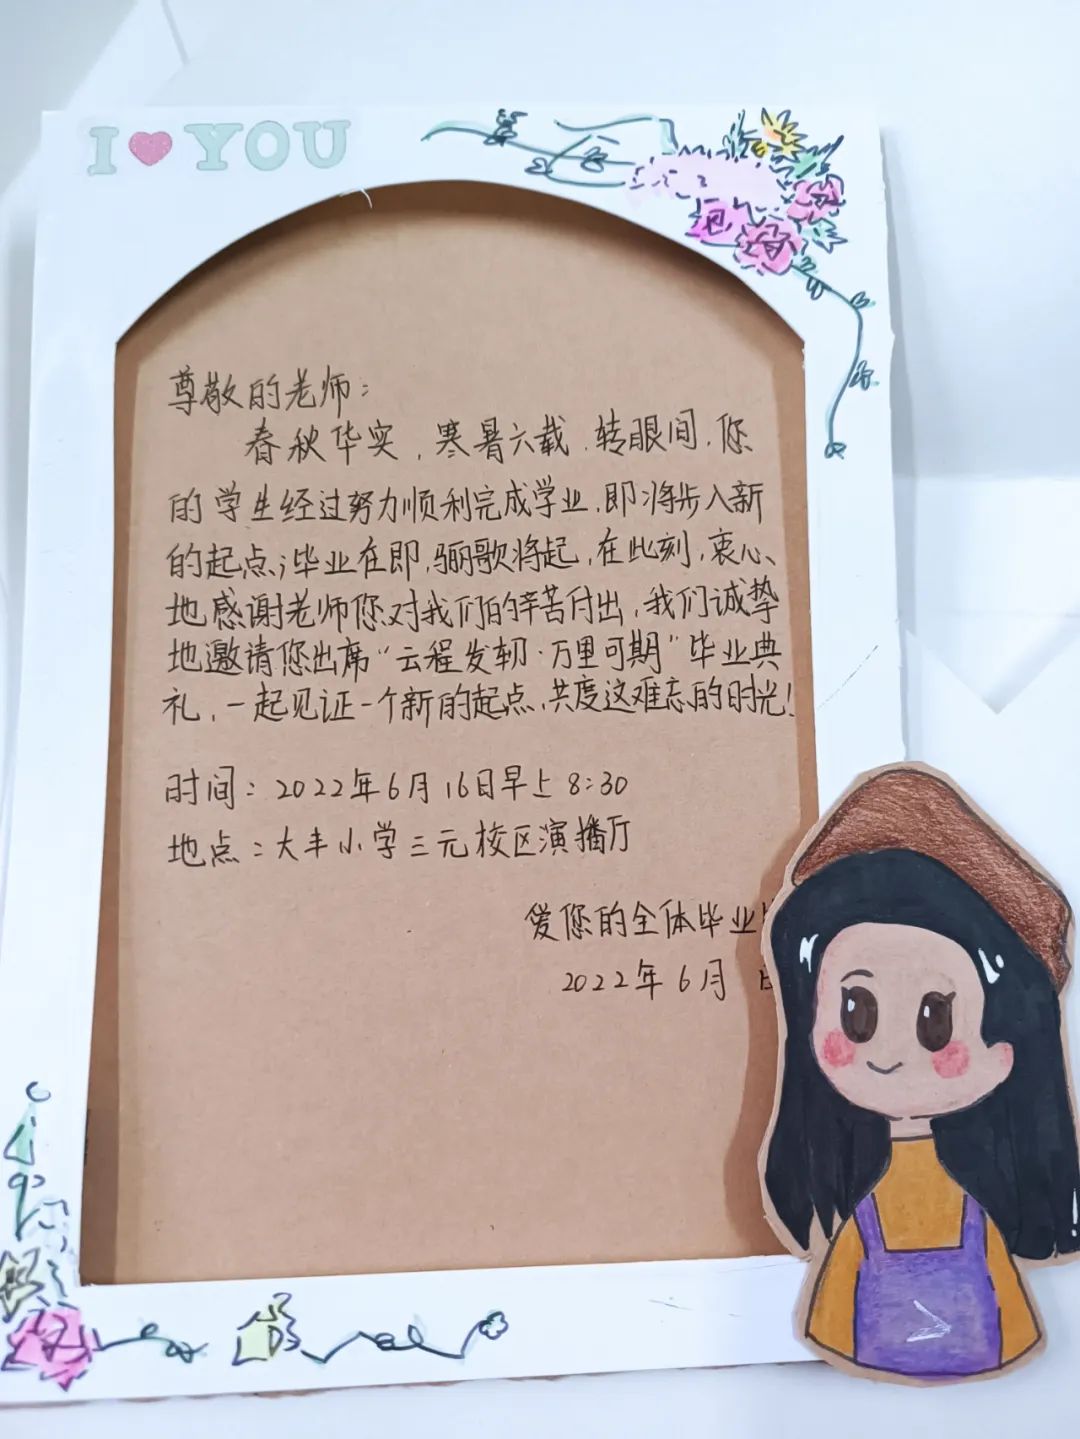 I ❤ YOU
尊敬的老师：
春秋华实，寒暑六载，转眼间，您
的学生经过努力顺利完成学业，即将步入新
的起点；毕业在即，骊歌将起，在此刻，衷心
地感谢老师您对我们的辛苦付出，我们诚挚
地邀请您出席“云程发轫·万里可期”毕业典
礼，一起见证一个新的起点，共度这难忘的时光！
时间：2022年6月16日早上8:30
地点：大丰小学三元校区演播厅
爱您的全体毕业
2022年6月 日